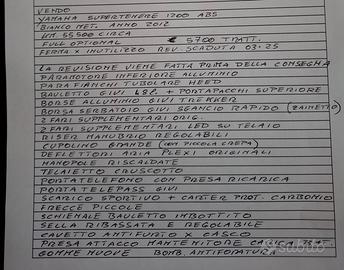 VENDO
YAMAHA SUPERTENERE 1200 ABS
BIANCO MET. ANNO 2012
KM. 55500 CIRCA
FULL OPTIONAL € 5700 TRATT.
FERMA X INUTILIZZO REV. SCADUTA 03-25
LA REVISIONE VIENE FATTA PRIMA DELLA CONSEGNA
PARAMOTORE INFERIORE ALLUMINIO
PARAFIANCHI TUBOLARE HEED
BAULETTO GIVI 48L + PORTAPACCHI SUPERIORE
BORSE ALLUMINIO GIVI TREKKER
BORSA SERBATOIO GIVI SGANCIO RAPIDO (ZAINETTO)
2 FARI SUPPLEMENTARI ORIG.
2 FARI SUPPLEMENTARI LED SU TELAIO
RISER MANUBRIO REGOLABILI
CUPOLINO GRANDE (CON PICCOLA CREPA)
DEFLETTORI ARIA PLEXI ORIGINALI
MANOPOLE RISCALDATE
TELAIETTO CRUSCOTTO
PORTATELEFONO CON PRESA RICARICA
PORTA TELEPASS GIVI
SCARICO SPORTIVO + CARTER PROT. CARBONIO
FRECCE PICCOLE
SCHIENALE BAULETTO IMBOTTITO
SELLA RIBASSATA E REGOLABILE
CAVETTO ANTIFURTO X CASCO
PRESA ATTACCO MANTENITORE CARICA BAT.
GOMME NUOVE BOMB. ANTIFORATURA